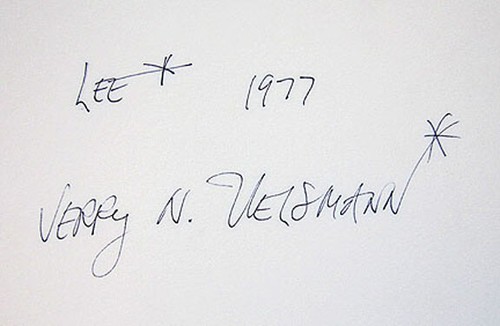 LEE* 1977
JERRY N. UELSMANN*